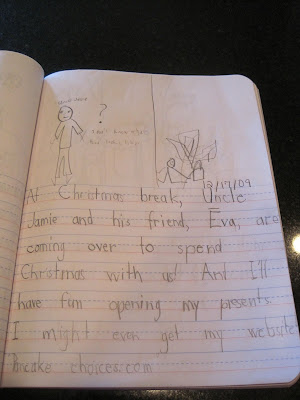 ?
12/17/09
At Christmas break, Uncle
Jamie and his friend, Eva, are
coming over to spend
Christmas with us! And I'll
have fun opening my presents.
I might even get my website,
choices.com